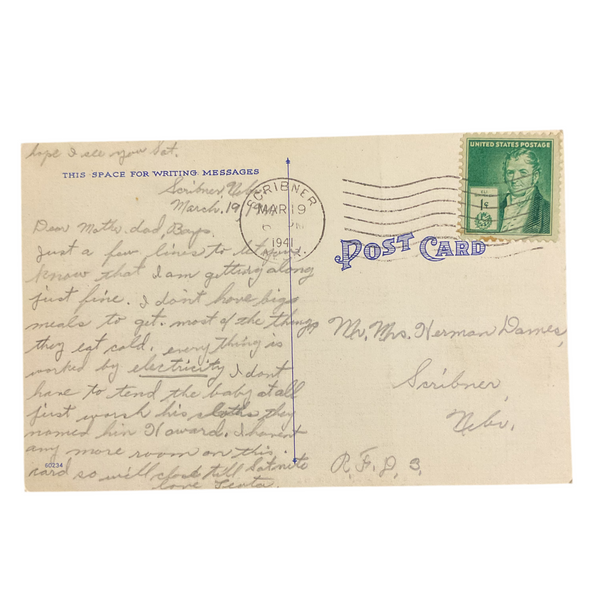 hope I see you Sat.
THIS SPACE FOR WRITING MESSAGES
Scribner, Nebr.
March. 19, 1941
Dear Moth. dad, Boys.
Just a few lines to let you
know that I am getting along
just fine. I don't have bigs
meals to get. most of the things
they eat cold. everything is
worked by electricity I dont
have to tend the baby at all
just wash his cloths they
named him Howard. I havent
any more room on this
card so we'll close till Satnite
love Leota.
S0234
SCRIBNER
MAR 19
1941
UNITED STATES POSTAGE
1¢
POST CARD
Mr. Mrs. Herman Dames,
Scribner,
Nebr.
R.F.D. 3.